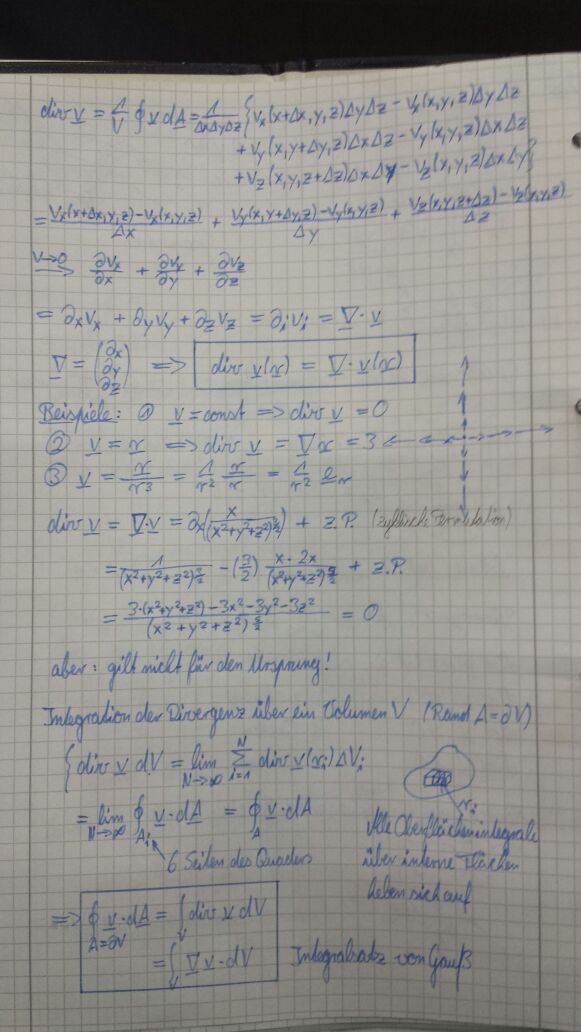 div v̲ = 1/V ∮ v̲ dA̲ = 1/(ΔxΔyΔz) {Vx(x+Δx,y,z)ΔyΔz − Vx(x,y,z)ΔyΔz
+ Vy(x,y+Δy,z)ΔxΔz − Vy(x,y,z)ΔxΔz
+ Vz(x,y,z+Δz)ΔxΔy − Vz(x,y,z)ΔxΔy}
= (Vx(x+Δx,y,z)−Vx(x,y,z))/Δx + (Vy(x,y+Δy,z)−Vy(x,y,z))/Δy + (Vz(x,y,z+Δz)−Vz(x,y,z))/Δz
V→0 ⟶ ∂vx/∂x + ∂vy/∂y + ∂vz/∂z
= ∂xvx + ∂yvy + ∂zvz = ∂ivi = ∇̲ · v̲
∇̲ = (∂x ∂y ∂z) ⟹ div v̲(r̲) = ∇̲ · v̲(r̲)
Beispiele: ① v̲ = const ⟹ div v̲ = 0
② v̲ = r̲ ⟹ div v̲ = ∇̲ r̲ = 3
③ v̲ = r̲/r³ = 1/r² r̲/r = 1/r² e̲r
div v̲ = ∇̲·v̲ = ∂x(x/(x²+y²+z²)^(3/2)) + z.P. (zyklische Permutation)
= 1/(x²+y²+z²)^(3/2) − (3/2) x·2x/(x²+y²+z²)^(5/2) + z.P.
= (3·(x²+y²+z²)−3x²−3y²−3z²)/(x²+y²+z²)^(5/2) = 0
aber: gilt nicht für den Ursprung!
Integration der Divergenz über ein Volumen V (Rand A=∂V)
∫ div v̲ dV = lim N→∞ Σ i=1 N div v̲(r̲i) ΔVi
ri
= lim N→∞ ∮Ai v̲·dA̲ = ∮A v̲·dA
6 Seiten des Quaders
Alle Oberflächenintegrale
über interne Flächen
heben sich auf
⟹ ∮A=∂V v̲·dA̲ = ∫V div v̲ dV
= ∫V ∇̲ v̲·dV Integralsatz von Gauß